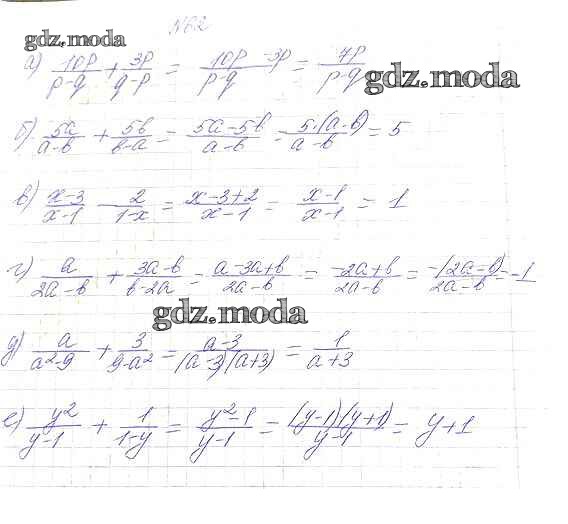 №62
gdz.moda
а) 10p/(p-q) + 3p/(q-p) = (10p - 3p)/(p-q) = 7p/(p-q)
gdz.moda
б) 5a/(a-b) + 5b/(b-a) = (5a-5b)/(a-b) = 5·(a-b)/(a-b) = 5
в) (x-3)/(x-1) - 2/(1-x) = (x-3+2)/(x-1) = (x-1)/(x-1) = 1
г) a/(2a-b) + (3a-b)/(b-2a) = (a-3a+b)/(2a-b) = (-2a+b)/(2a-b) = -(2a-b)/(2a-b) = -1
gdz.moda
д) a/(a²-9) + 3/(9-a²) = (a-3)/((a-3)(a+3)) = 1/(a+3)
е) y²/(y-1) + 1/(1-y) = (y²-1)/(y-1) = (y-1)(y+1)/(y-1) = y+1